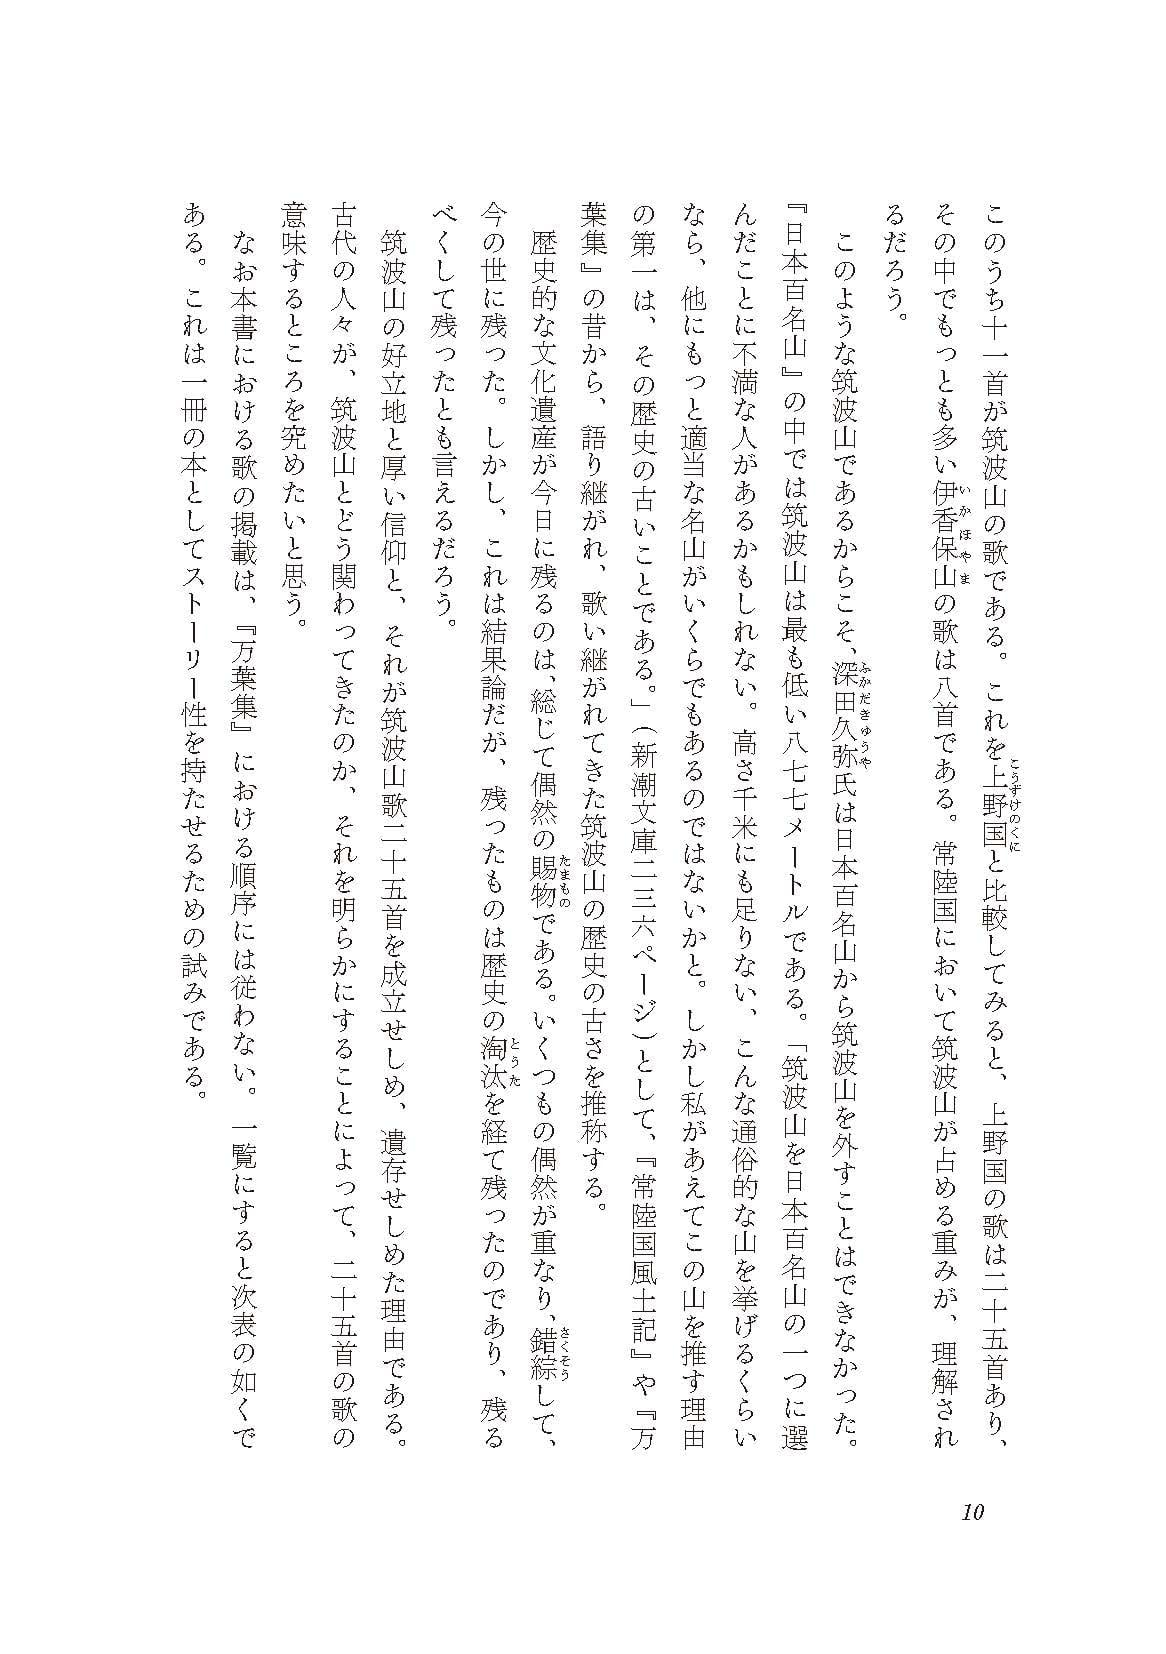 このうち十一首が筑波山の歌である。これを上野国と比較してみると、上野国の歌は二十五首あり、
こうずけのくに
その中でもっとも多い伊香保山の歌は八首である。常陸国において筑波山が占める重みが、理解され
いかほやま
るだろう。
このような筑波山であるからこそ、深田久弥氏は日本百名山から筑波山を外すことはできなかった。
ふかだきゅうや
『日本百名山』の中では筑波山は最も低い八七七メートルである。「筑波山を日本百名山の一つに選
んだことに不満な人があるかもしれない。高さ千米にも足りない、こんな通俗的な山を挙げるくらい
なら、他にもっと適当な名山がいくらでもあるのではないかと。しかし私があえてこの山を推す理由
の第一は、その歴史の古いことである。」（新潮文庫二三六ページ）として、『常陸国風土記』や『万
葉集』の昔から、語り継がれ、歌い継がれてきた筑波山の歴史の古さを推称する。
歴史的な文化遺産が今日に残るのは、総じて偶然の賜物である。いくつもの偶然が重なり、錯綜して、
たまもの
さくそう
今の世に残った。しかし、これは結果論だが、残ったものは歴史の淘汰を経て残ったのであり、残る
とうた
べくして残ったとも言えるだろう。
筑波山の好立地と厚い信仰と、それが筑波山歌二十五首を成立せしめ、遺存せしめた理由である。
古代の人々が、筑波山とどう関わってきたのか、それを明らかにすることによって、二十五首の歌の
意味するところを究めたいと思う。
なお本書における歌の掲載は、『万葉集』における順序には従わない。一覧にすると次表の如くで
ある。これは一冊の本としてストーリー性を持たせるための試みである。
10